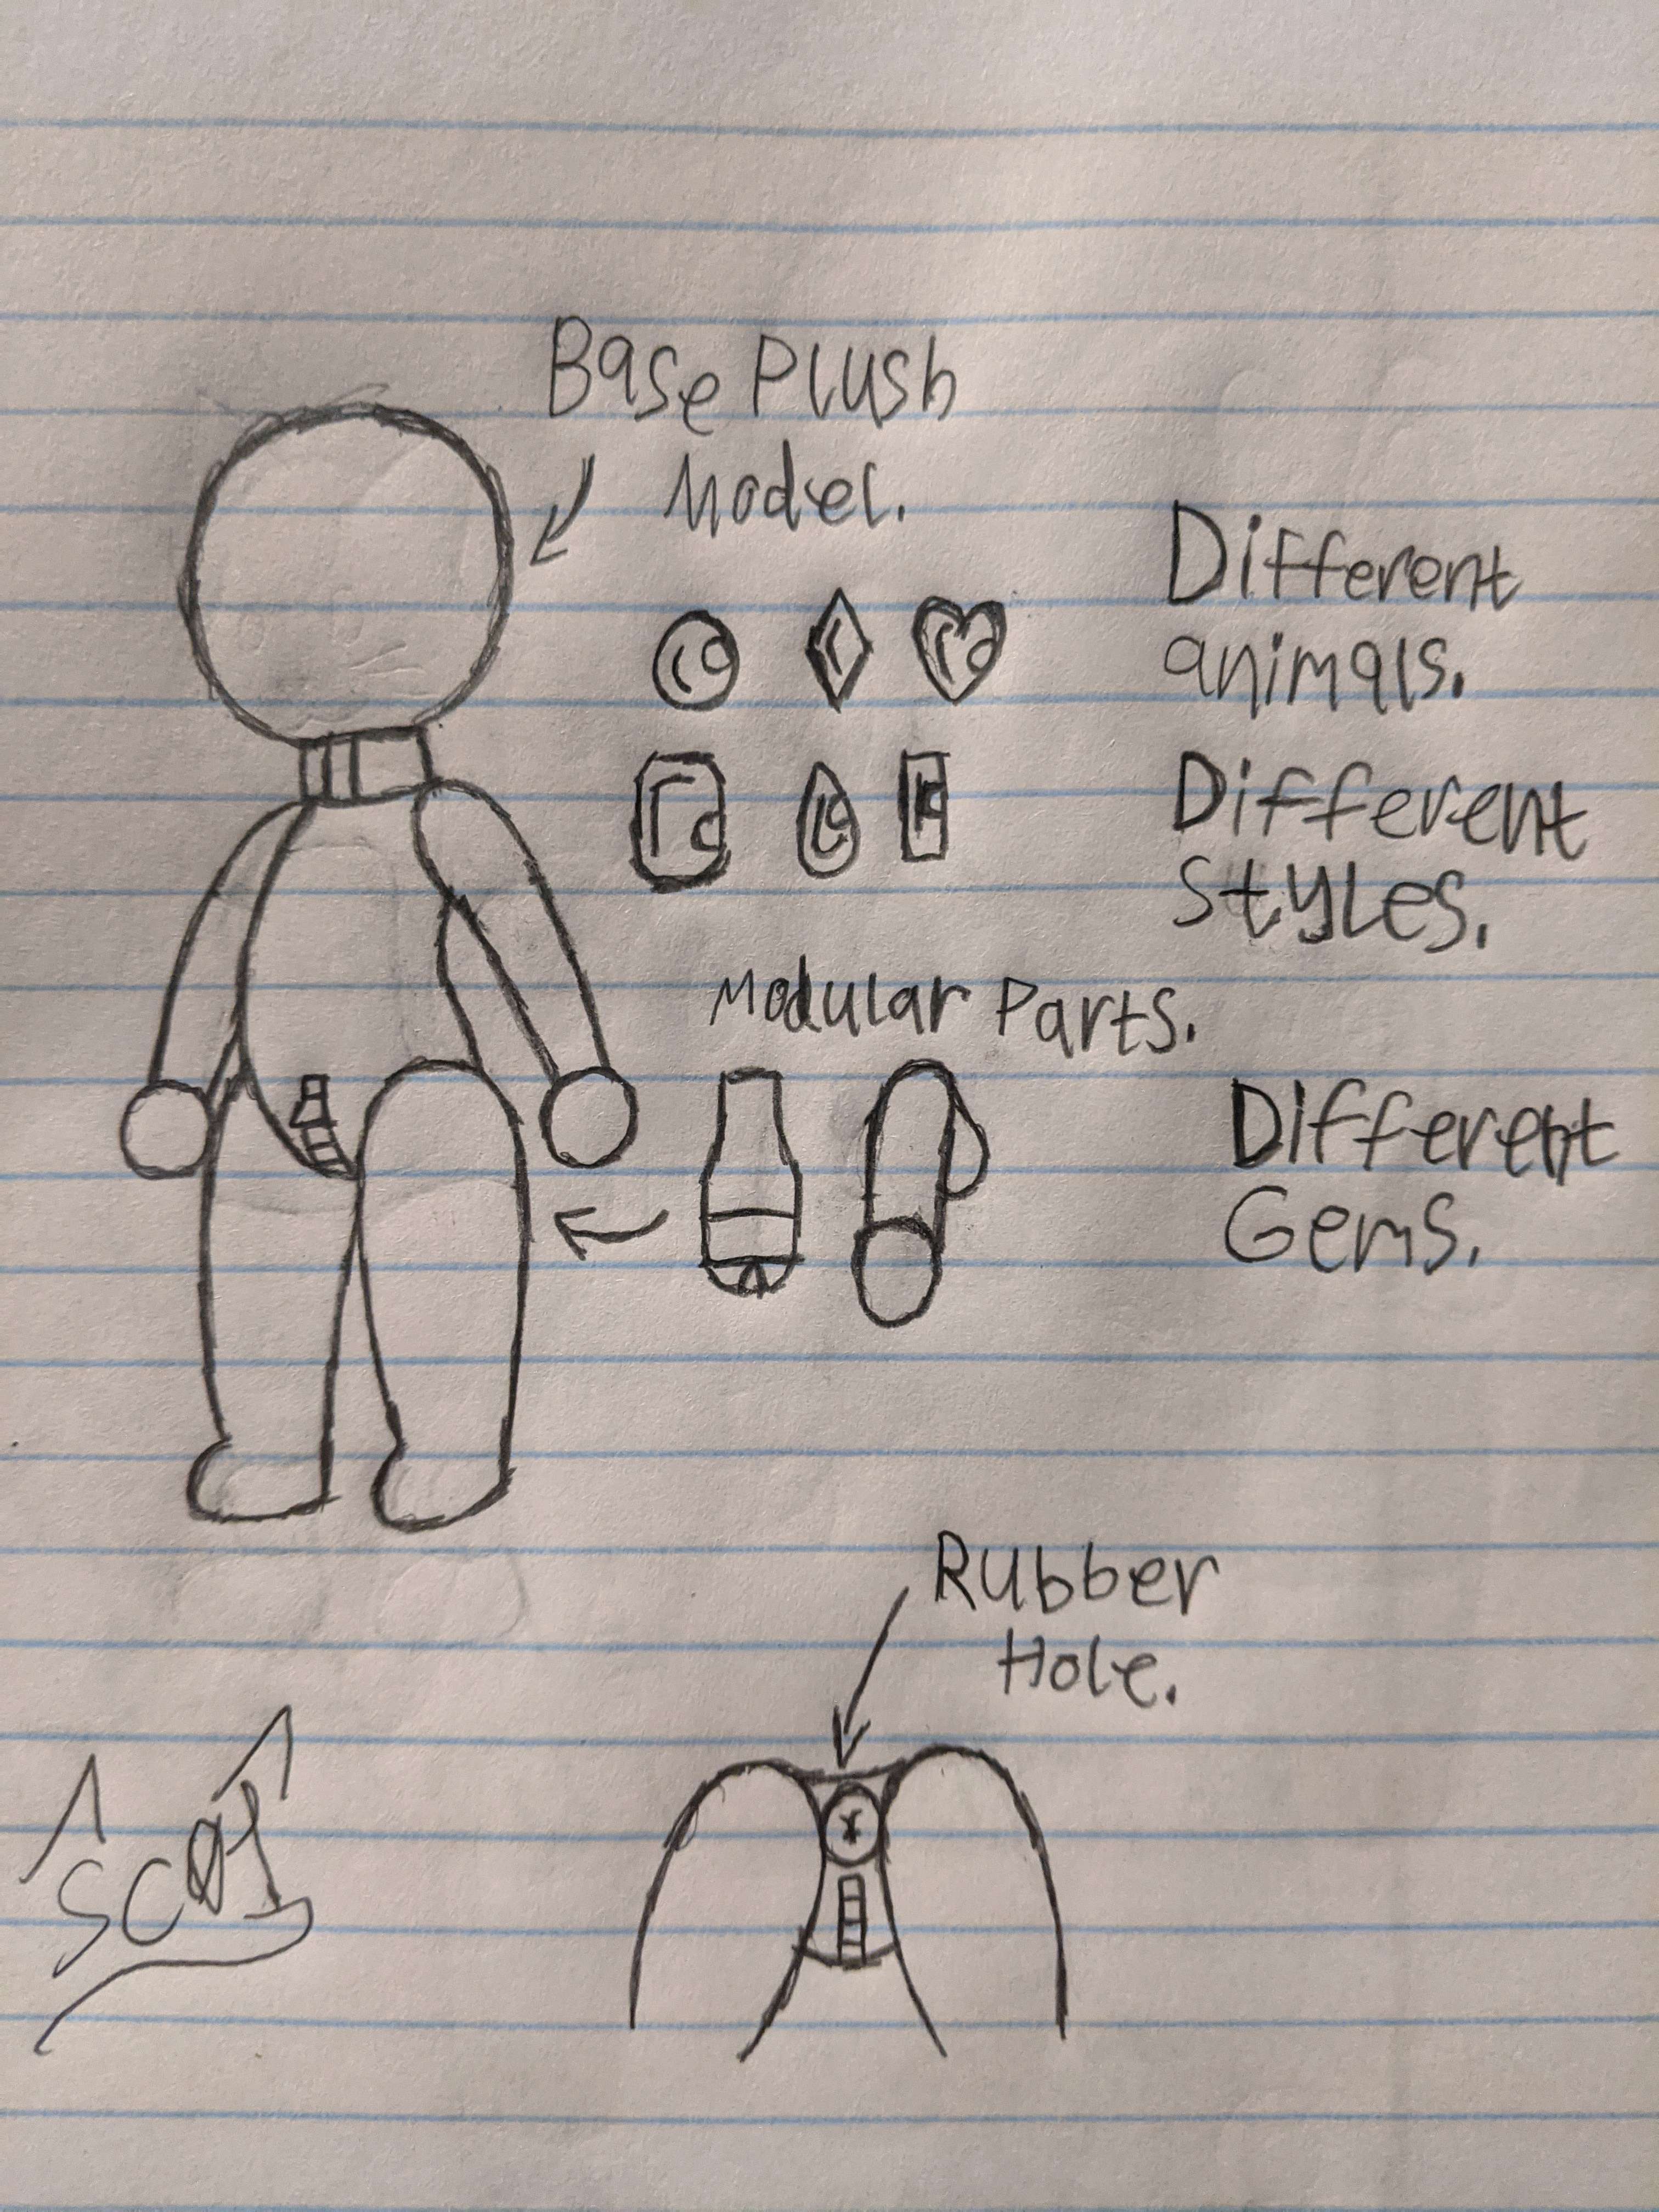 Base Plush
Model.
Different
animals.
Different
Styles.
Modular Parts.
Different
Gems.
Rubber
Hole.